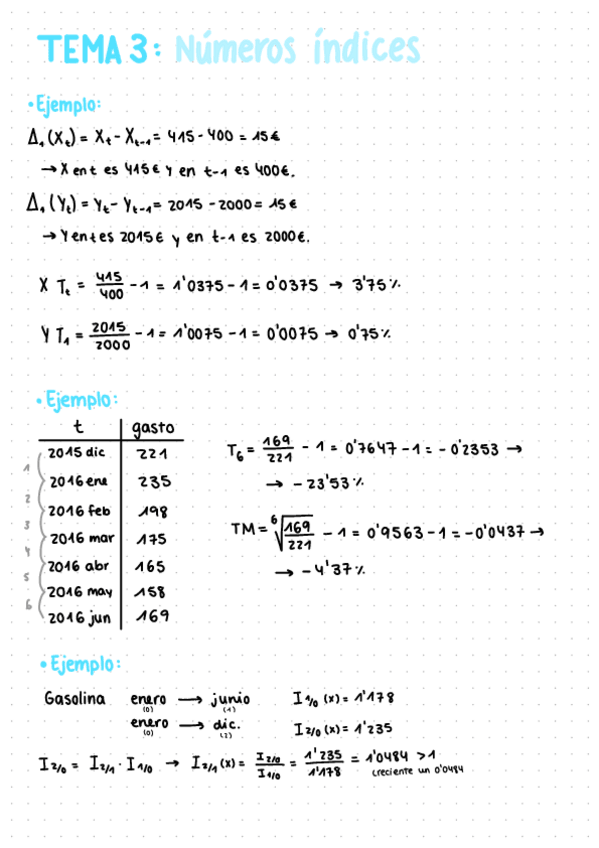 TEMA 3: Números índices
• Ejemplo:
Δ₁(Xₜ) = Xₜ - Xₜ₋₁ = 415 - 400 = 15€
→ X en t es 415€ y en t-1 es 400€.
Δ₁(Yₜ) = Yₜ - Yₜ₋₁ = 2015 - 2000 = 15€
→ Y en t es 2015€ y en t-1 es 2000€.
X Tₜ = 415/400 - 1 = 1'0375 - 1 = 0'0375 → 3'75%
Y T₁ = 2015/2000 - 1 = 1'0075 - 1 = 0'0075 → 0'75%
• Ejemplo:
t gasto
2015 dic 221
1
2016 ene 235
2
2016 feb 198
3
2016 mar 175
4
2016 abr 165
5
2016 may 158
6
2016 jun 169
T₆ = 169/221 - 1 = 0'7647 - 1 = - 0'2353 →
→ - 23'53%
TM = ⁶√(169/221) - 1 = 0'9563 - 1 = -0'0437 →
→ - 4'37%
• Ejemplo:
Gasolina enero → junio I₁/₀ (x) = 1'178
(0) (1)
enero → dic. I₂/₀ (x) = 1'235
(0) (2)
I₂/₀ = I₂/₁ · I₁/₀ → I₂/₁ (x) = I₂/₀ / I₁/₀ = 1'235/1'178 = 1'0484 > 1
creciente un 0'0484